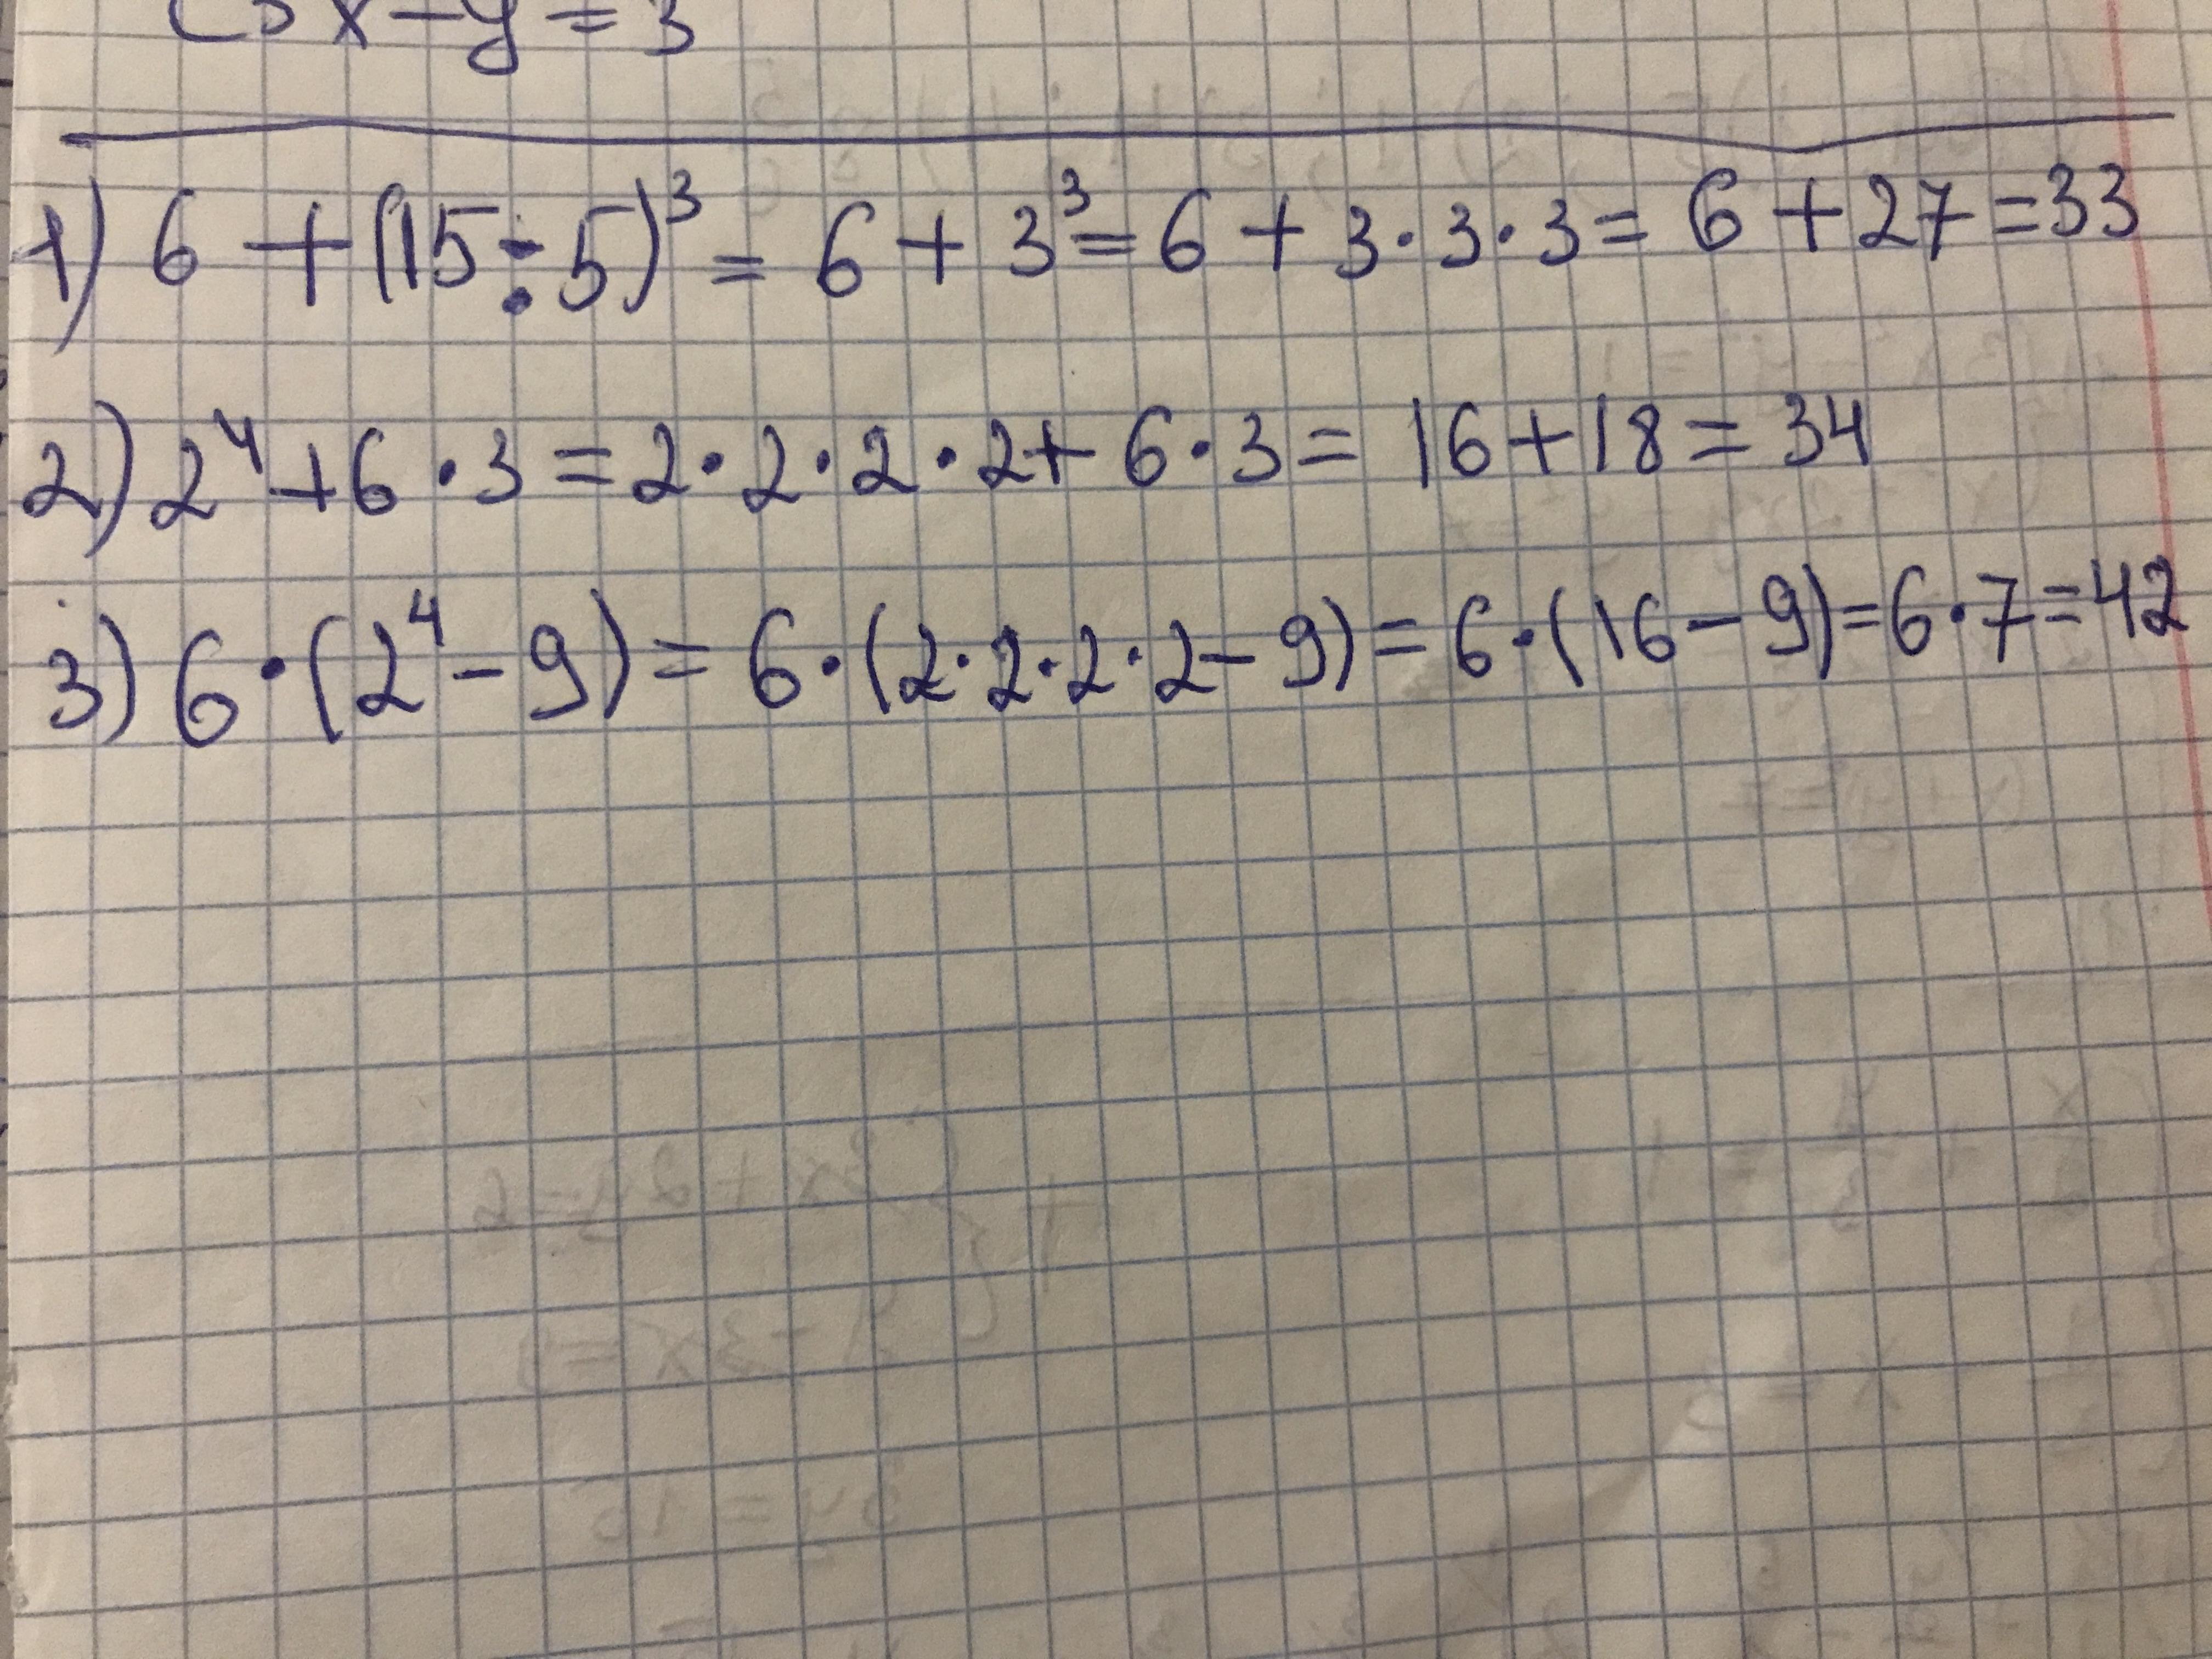 5x-y=3
1) 6+(15÷5)³=6+3³=6+3·3·3=6+27=33
2) 2⁴+6·3=2·2·2·2+6·3=16+18=34
3) 6·(2⁴-9)=6·(2·2·2·2-9)=6·(16-9)=6·7=42